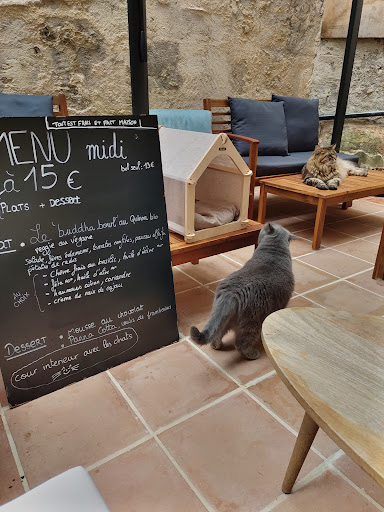 TOUT EST FRAIS ET FAIT MAISON
MENU midi
à 15 €
bol seul : 13€
PLATS + DESSERT
Le buddha bowl au Quinoa bio
veggie ou vegan
salade, fèves édamame, tomates confites,
pétales de radis
AU CHOIX
- Chèvre, frais au basilic, huile d'olive
- huile d'olive
- houmous citron, coriandre
- crème de noix de cajou
DESSERT : - Mousse au chocolat
- Panna Cotta coulis de framboises
Cour intérieur avec les chats